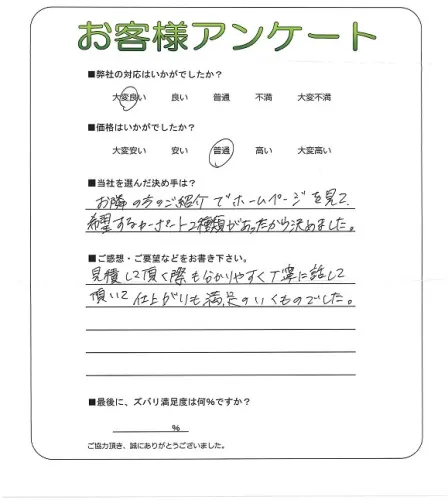 お客様アンケート
■弊社の対応はいかがでしたか？
大変良い 良い 普通 不満 大変不満
■価格はいかがでしたか？
大変安い 安い 普通 高い 大変高い
■当社を選んだ決め手は？
お隣の方のご紹介でホームページを見て、
希望するカーポート2種類があったから決めました。
■ご感想・ご要望などをお書き下さい。
見積して頂く際も分かりやすく丁寧に話して
頂いて仕上がりも満足のいくものでした。
■最後に、ズバリ満足度は何％ですか？
％
ご協力頂き、誠にありがとうございました。